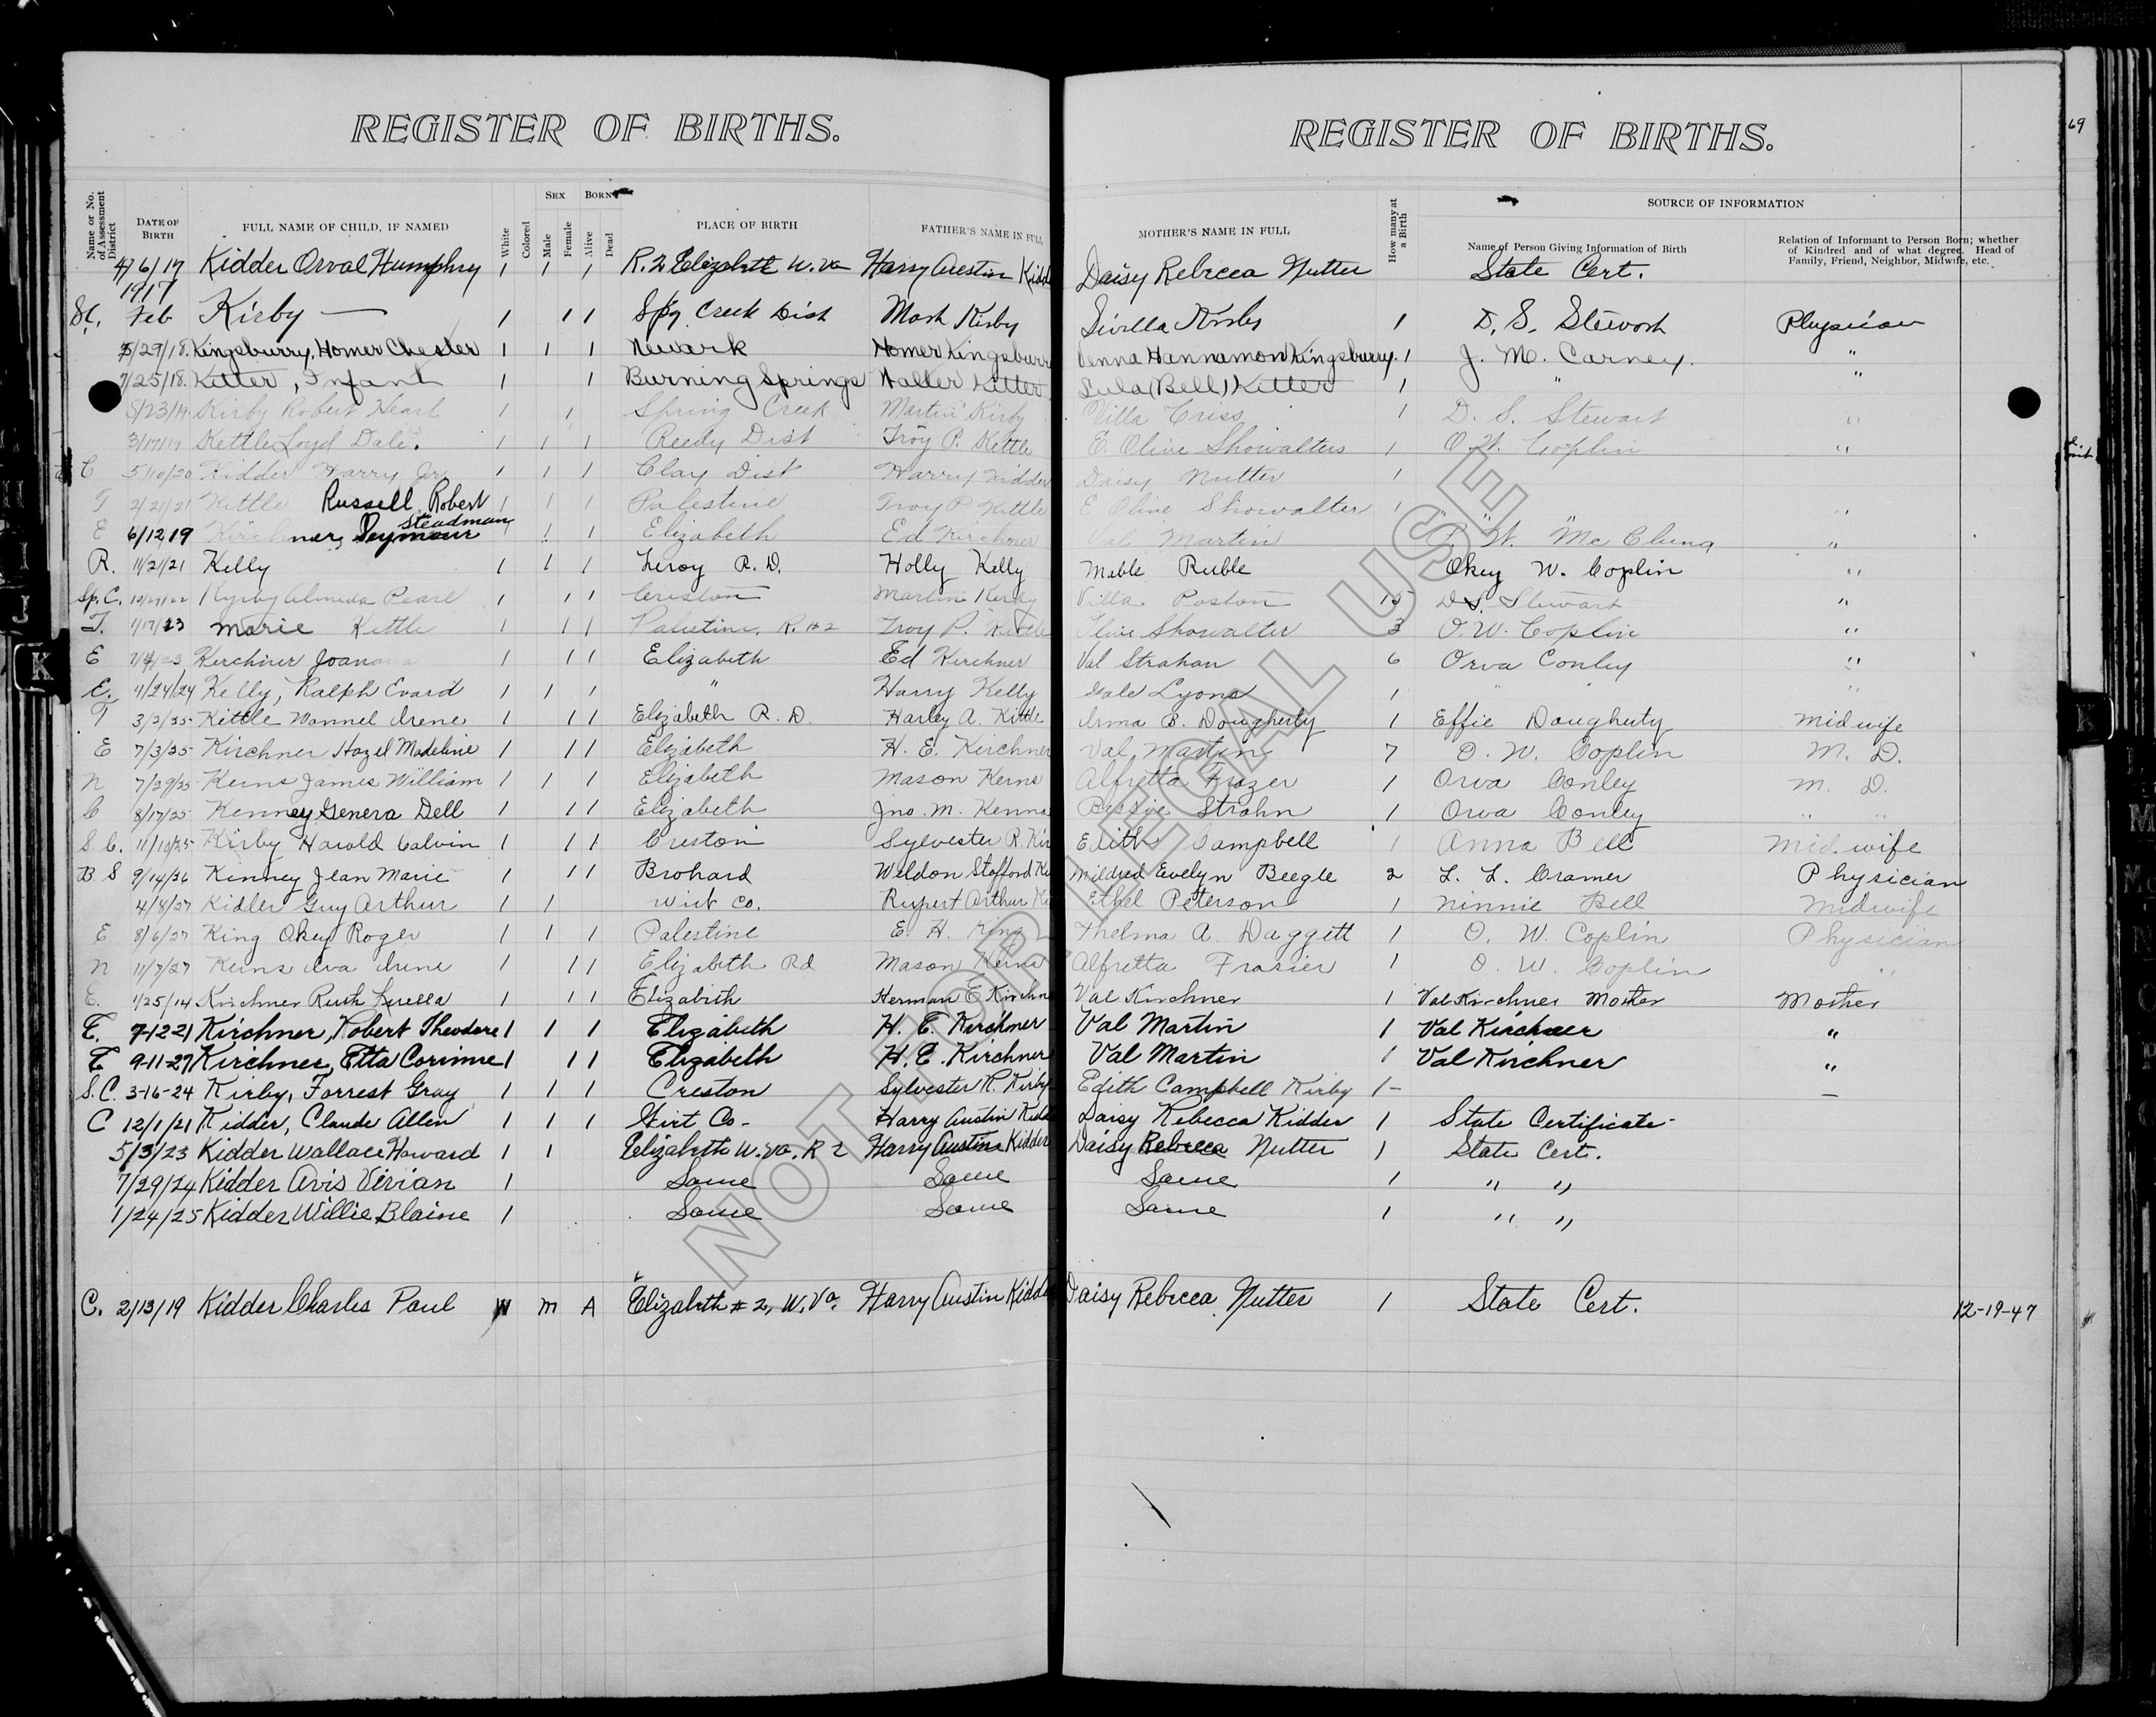 REGISTER OF BIRTHS.
REGISTER OF BIRTHS.
69
Name or No. of Assessment District
DATE OF BIRTH
FULL NAME OF CHILD, IF NAMED
White
Colored
SEX
Male
Female
BORN
Alive
Dead
PLACE OF BIRTH
FATHER'S NAME IN FULL
MOTHER'S NAME IN FULL
How many at a Birth
SOURCE OF INFORMATION
Name of Person Giving Information of Birth
Relation of Informant to Person Born; whether of Kindred and of what degree. Head of Family, Friend, Neighbor, Midwife, etc.
4/6/17 Kidder Orval Humphry 1 1 1 R. 2 Elizabeth W. Va Harry Austin Kidd Daisy Rebecca Nutter State Cert.
1917
SC. Feb Kirby — 1 1 1 Spg Creek Dist Mart Kirby 1 D. S. Stewart Physician
5/29/18. Kingsburry, Homer Chester 1 1 1 Newark Homer Kingsburr Denna Hannamon Kingsburry. 1 J. M. Carney. "
7/25/18. Kitter, Infant 1 1 Burning Springs Walter Kitter Lula (Bell) Kitter 1 " "
5/23/19 Kirby Robert 1 1 Spring Creek Martin Kirby Villa Criss 1 D. S. Stewart "
3/17/19 Kettle Loyd Dale. 1 1 1 Reedy Dist Troy P. Kettle E. Olive Showalters 1 O. W. Coplin "
C 5/10/20 Kidder Harry Jr 1 1 1 Clay Dist Harry Kidder Daisy Nutter 1
T 2/21/21 Kittle Russell Robert 1 1 1 Palestine Troy P Kittle E Olive Showalter 1 " " " "
Steadman
E 6/12/19 Kirchner, Seymour 1 1 Elizabeth Ed Kirchner Val Martin W. McClung "
R. 11/21/21 Kelly 1 1 1 Leroy R. D. Holly Kelly Mable Ruble Okey W. Coplin "
Sp. C. Kyrby Almeda Pearl 1 1 1 Creston Martin Kerby Villa Poston 15 D. S. Stewart "
T. 1/17/23 Marie Kettle 1 1 1 Palestine, R. #2 Troy P. Kettle Olive Showalter 3 O. W. Coplin "
E Kerchner Joan 1 1 1 Elizabeth Ed Kerchner Val Strahan 6 Orva Conley "
E. 11/24/24 Kelly, Ralph Evard 1 1 1 " Harry Kelly Gale Lyons 1 " " "
T 3/2/25 Kittle Wannel Irene 1 1 1 Elizabeth R. D. Harley A. Kittle Irma B. Dougherty 1 Effie Dougherty Midwife
E 7/3/25 Kirchner Hazel Madeline 1 1 1 Elizabeth H. E. Kirchner Val Martin 7 O. W. Coplin M. D.
N 7/29/25 Kerns James William 1 1 1 Elizabeth Mason Kerns Alfretta Frazer 1 Orva Conley M. D.
C 8/17/25 Kenney Genera Dell 1 1 1 Elizabeth Jno. M. Kenna Bessie Strahn 1 Orva Conley " "
S. C. 11/10/25 Kirby Harold Calvin 1 1 1 Creston Sylvester R. Kir Edith Campbell 1 Anna Bell Midwife
B. S 9/14/26 Kinney Jean Marie 1 1 1 Brohard Weldon Stafford Ki Mildred Evelyn Beegle 2 L. L. Cramer Physician
4/8/27 Kidler Guy Arthur 1 1 Wirt Co. Rupert Arthur Ki Ethel Peterson 1 Ninnie Bell Midwife
E 8/6/27 King Okey Roger 1 1 1 Palestine E. H. King Thelma A. Daggett 1 O. W. Coplin Physician
N 11/7/27 Kerns Iva Irene 1 1 1 Elizabeth Rd Mason Kerns Alfretta Frasier 1 O. W. Coplin "
E. 1/25/14 Kirchner Ruth Luella 1 1 1 Elizabeth Herman E Kirchn Val Kirchner 1 Val Kirchner Mother Mother
E. 7-12-21 Kirchner, Robert Theodore 1 1 1 Elizabeth H. E. Kirchner Val Martin 1 Val Kirchner "
E 9-11-27 Kirchner, Etta Corinne 1 1 1 Elizabeth H. E. Kirchner Val Martin 1 Val Kirchner "
S. C. 3-16-24 Kirby, Forrest Gray 1 1 1 Creston Sylvester R. Kirby Edith Campbell Kirby 1 — —
C 12/1/21 Kidder, Claude Allen 1 1 1 Wirt Co- Harry Austin Kidd Daisy Rebecca Kidder 1 State Certificate-
5/3/23 Kidder Wallace Howard 1 1 Elizabeth W. Va. R 2 Harry Austin Kidder Daisy Rebecca Nutter 1 State Cert.
7/29/24 Kidder Avis Vivian 1 Same Same Same 1 " "
1/24/25 Kidder Willie Blaine 1 Same Same Same 1 " "
C. 2/13/19 Kidder Charles Paul W M A Elizabeth #2, W. Va. Harry Austin Kidde Daisy Rebecca Nutter 1 State Cert. 12-19-47
NOT FOR LEGAL USE
K
K